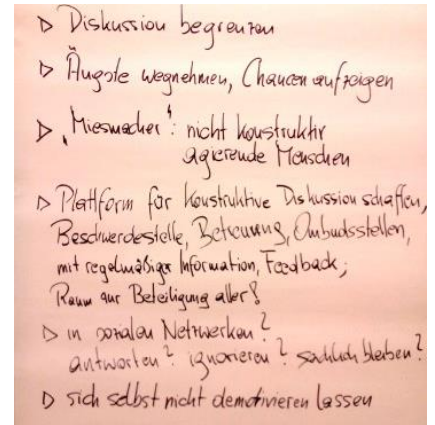 ▷ Diskussion begrenzen
▷ Ängste wegnehmen, Chancen aufzeigen
▷ "Miesmacher": nicht konstruktiv
agierende Menschen
▷ Plattform für konstruktive Diskussion schaffen,
Beschwerdestelle, Betreuung, Ombudsstellen,
mit regelmäßiger Information, Feedback;
Raum zur Beteiligung aller!
▷ in sozialen Netzwerken?
antworten? ignorieren? sachlich bleiben?
▷ sich selbst nicht demotivieren lassen